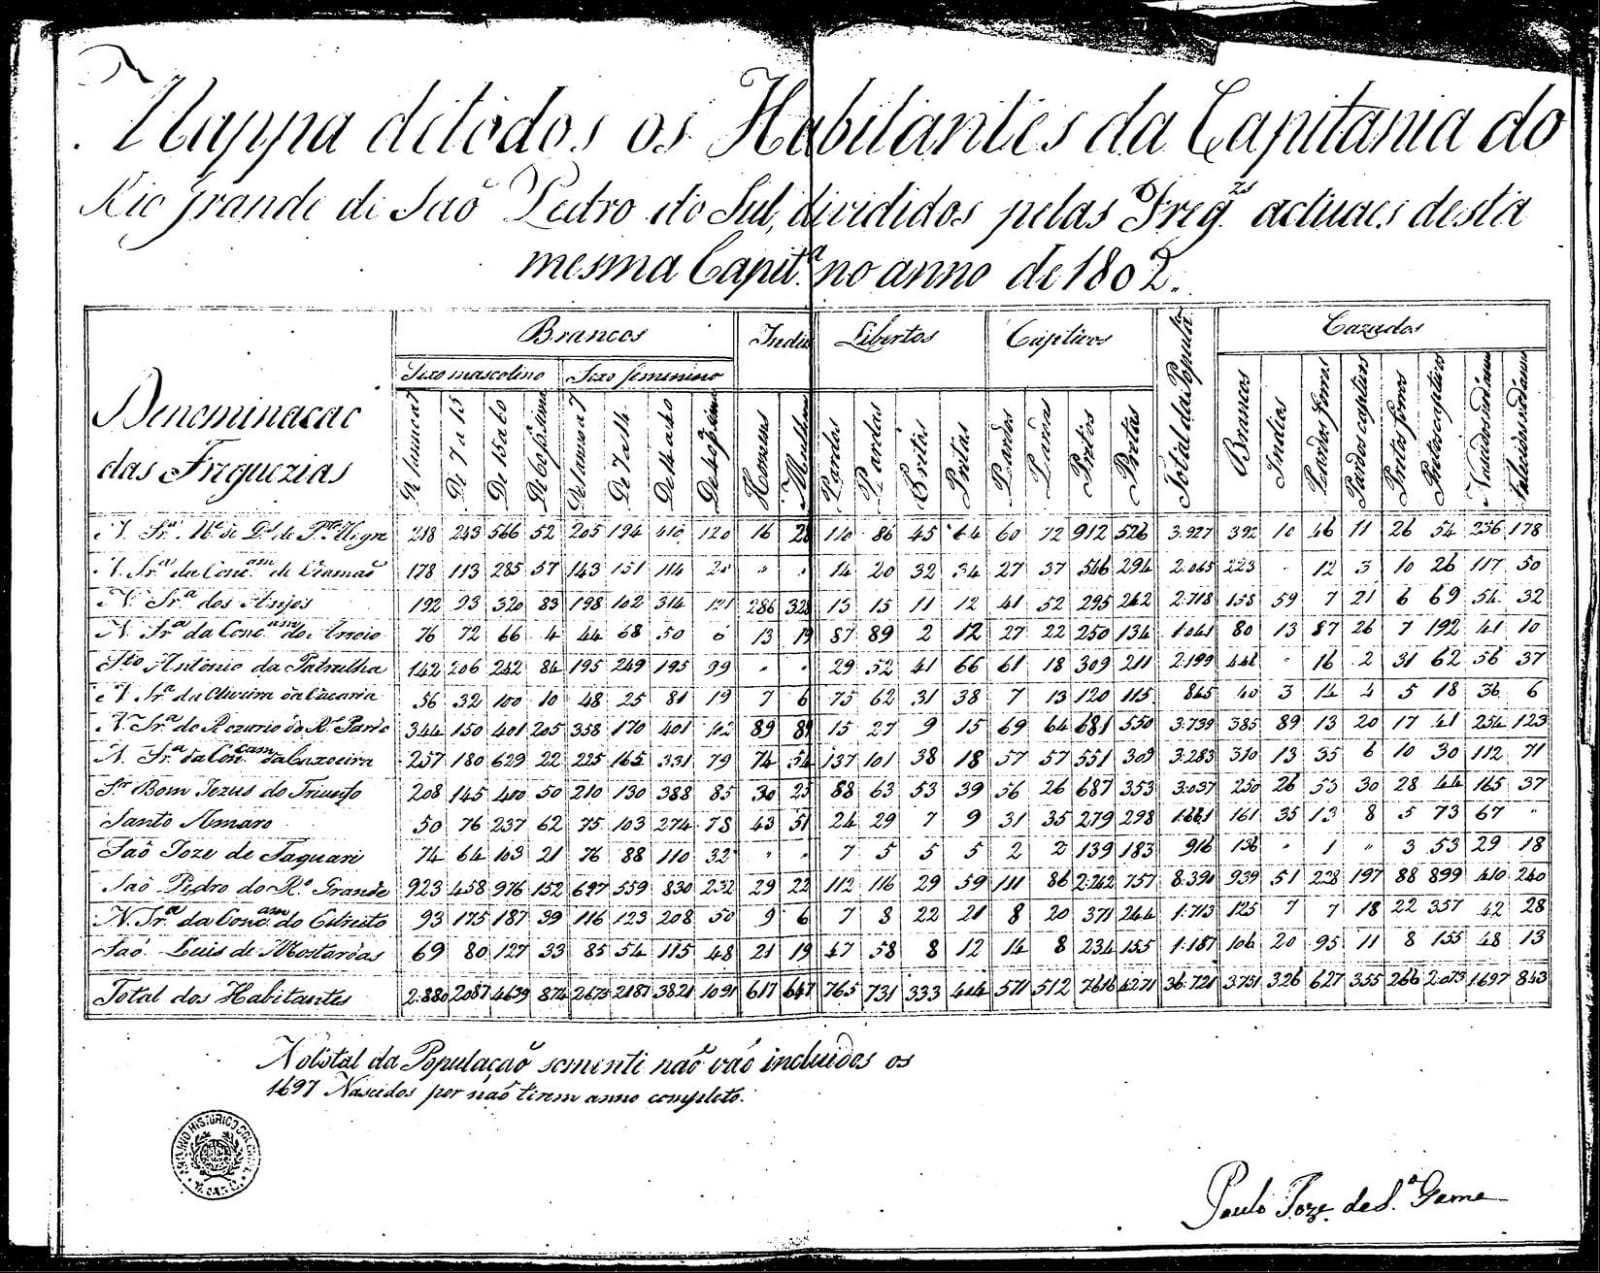 Mappa de todos os Habitantes da Capitania do
Rio grande de Saõ Pedro do Sul, divididos pelas Freg.zs actuaes desta
mesma Capit.a no anno de 1802.
Denominacaõ das Freguezias
Brancos Indios Libertos Captivos Total da Populaõ Cazados
Sexo mascolino Sexo feminino
De 7 a 15 De 15 a 60 De 7 a 14 De 14 a 40 Homens Mulheres Pardos Pardas Pretos Pretas Pardos Pardas Pretos Pretas Brancos Indios Pardos forros Pardos captivos Pretos forros Pretos captivos
N. Sr.a M.e de D.s de P.to Alegre 218 243 566 52 205 194 410 120 16 28 110 86 45 64 60 72 912 526 3.927 392 10 46 11 26 54 236 178
N. Sr.a da Conc.am de Viamaõ 178 113 285 57 143 151 114 20 " " 14 20 32 34 27 37 546 294 2.065 223 " 12 3 10 26 117 50
N. Sr.a dos Anjos 192 93 320 83 198 102 314 121 286 328 13 15 11 12 41 52 295 242 2.718 158 59 7 21 6 69 54 32
N. Sr.a da Conc.am do Arroio 76 72 66 4 44 68 50 6 13 19 87 89 2 12 27 22 250 134 1.041 80 13 87 26 7 192 41 10
S.to Antonio da Patrulha 142 206 242 84 195 249 195 99 " " 29 52 41 66 61 18 309 211 2.199 441 " 16 2 31 62 56 37
N. Sr.a da Oliveira da Vacaria 56 32 100 10 48 25 81 19 7 6 75 62 31 38 7 13 120 115 845 40 3 14 4 5 18 36 6
N. Sr.a do Rozario do R.o Pardo 344 150 401 205 358 170 401 102 89 89 15 27 9 15 69 64 681 550 3.739 385 89 13 20 17 41 254 123
N. Sr.a da Con.cam da Caxoeira 257 180 629 22 225 165 331 79 74 54 137 101 38 18 57 57 551 308 3.283 310 13 35 6 10 30 112 71
S.r Bom Jezus do Triunfo 208 145 400 50 210 130 388 85 30 25 88 63 53 39 56 26 687 353 3.037 250 26 53 30 28 44 165 37
Santo Amaro 50 76 237 62 75 103 274 78 43 51 24 29 7 9 31 35 279 298 1.661 161 35 13 8 5 73 67 "
Saõ Joze de Taquari 74 64 103 21 76 88 110 32 " " 7 5 5 5 2 2 139 183 916 136 " 1 " 3 53 29 18
Saõ Pedro do R.o Grande 923 458 976 152 697 559 830 232 29 22 112 116 29 59 111 86 2.242 757 8.390 939 51 228 197 88 899 410 240
N. Sr.a da Conc.am do Estreito 93 175 187 39 116 123 208 50 9 6 7 8 22 21 8 20 371 244 1.713 125 7 7 18 22 357 42 28
Saõ Luis de Mostardas 69 80 127 33 85 54 115 48 21 19 47 58 8 12 14 8 234 155 1.187 106 20 95 11 8 155 48 13
Total dos Habitantes 2.880 2087 4639 874 2675 2187 3821 1091 617 647 765 731 333 404 571 512 7616 4271 36.721 3751 326 627 355 266 2.073 1697 843
No total da Populaçaõ somente naõ vaõ incluidos os
1697 Nascidos por naõ terem anno completo.
Paulo Joze da S.a Gama